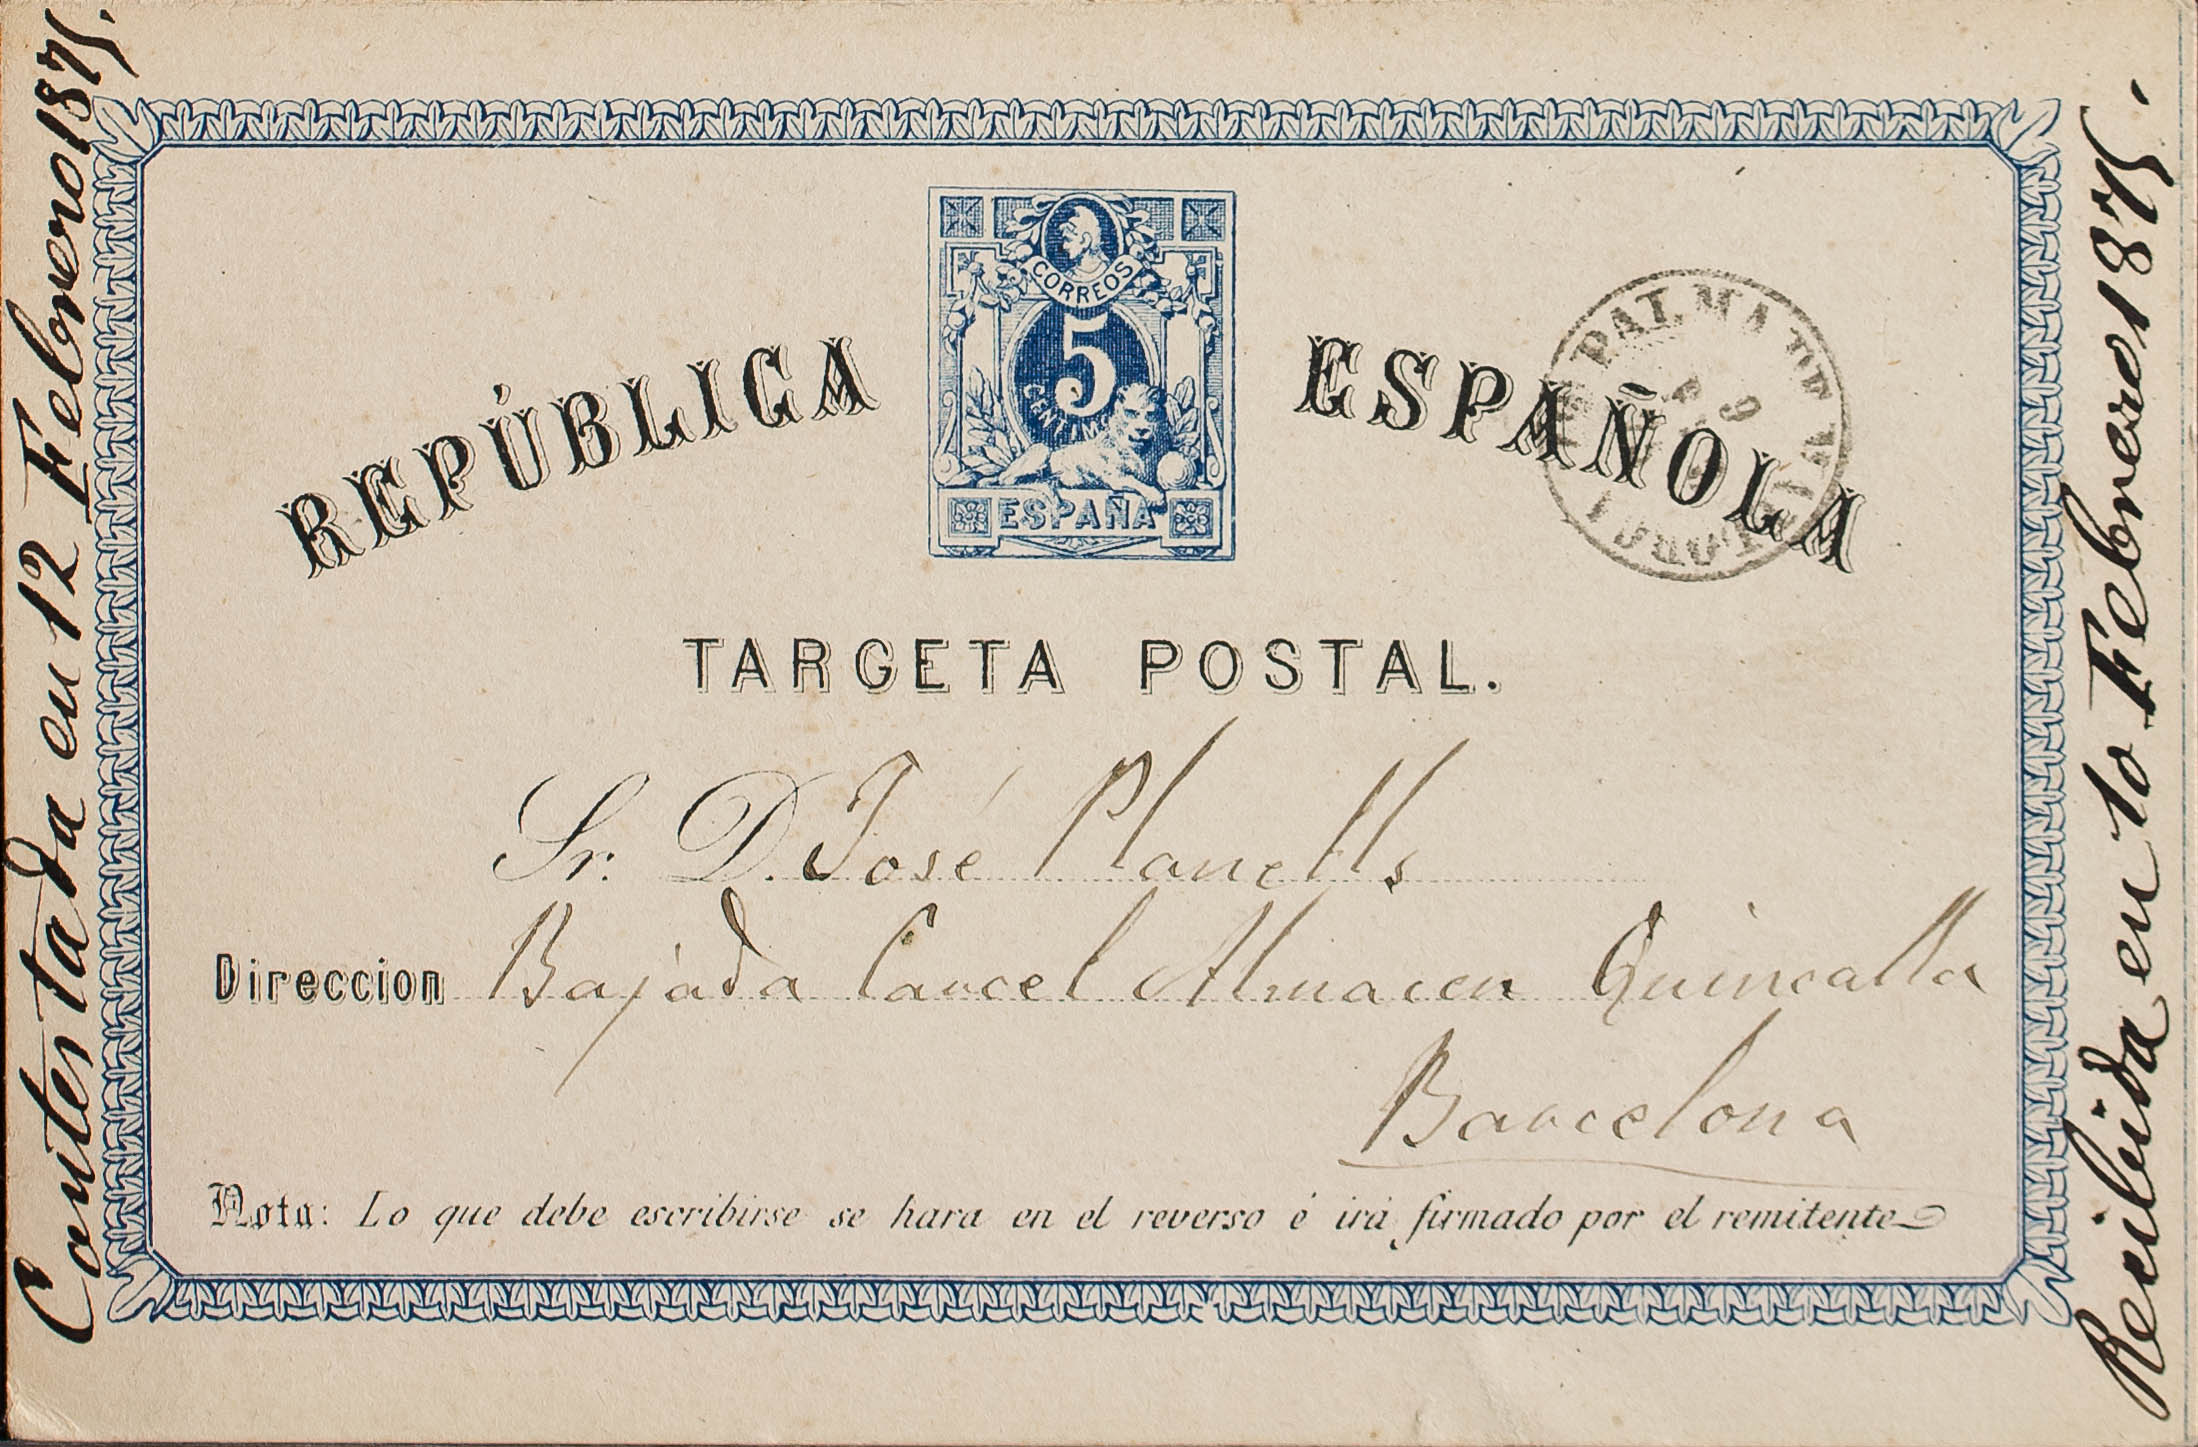 Contestada en 12 Febrero 1875.
CORREOS
5
CENTIMOS
ESPAÑA
REPÚBLICA ESPAÑOLA
PALMA DE MALLORCA
TARGETA POSTAL.
Sr. D. José Planells
Direccion Bajada Carcel Almacen Quincalla
Barcelona
Nota: Lo que debe escribirse se hara en el reverso é irá firmado por el remitente
Recibida en 10 Febrero 1875.